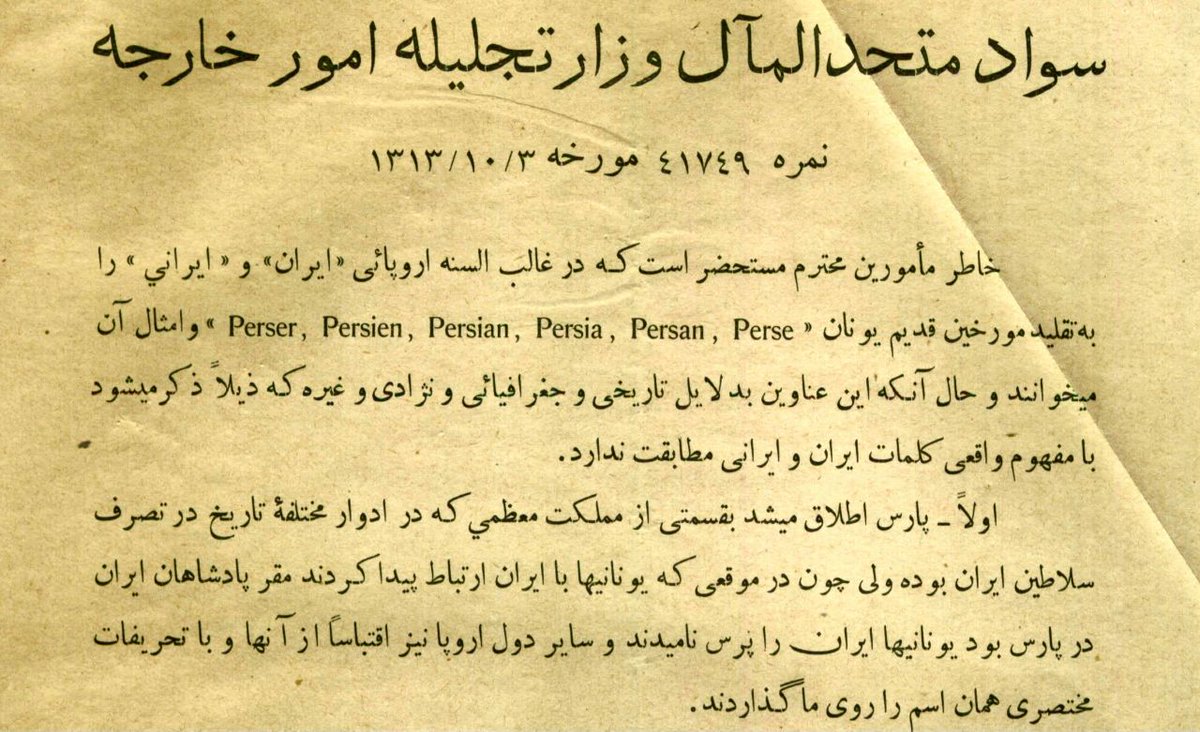 سواد متحدالمآل وزارتجلیله امور خارجه
نمره ٤١٧٤٩ مورخه ١٣١٣/١٠/٣
خاطر مأمورین محترم مستحضر است که در غالب السنه اروپائی «ایران» و «ایراني» را
به تقلید مورخین قدیم یونان «Perser, Persien, Persian, Persia, Persan, Perse» و امثال آن
میخوانند و حال آنکه این عناوین بدلایل تاریخی و جغرافیائی و نژادی و غیره که ذیلاً ذکر میشود
با مفهوم واقعی کلمات ایران و ایرانی مطابقت ندارد.
اولاً ـ پارس اطلاق میشد بقسمتی از مملکت معظمي که در ادوار مختلفهٔ تاریخ در تصرف
سلاطین ایران بوده ولی چون در موقعی که یونانیها با ایران ارتباط پیدا کردند مقر پادشاهان ایران
در پارس بود یونانیها ایران را پَرس نامیدند و سایر دول اروپا نیز اقتباساً از آنها و با تحریفات
مختصری همان اسم را روی ما گذاردند.